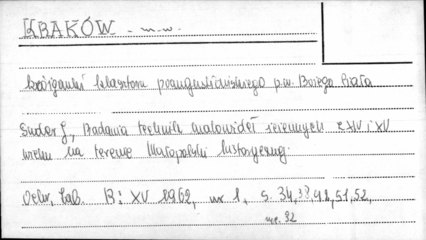 KRAKÓW - m.w.
krużganki klasztoru poaugustiańskiego p.w. Bożego Ciała
Suder J, Badania technik malowideł ściennych z XIV i XV
wieku na terenie Małopolski historycznej.
Ochr. Zab. R: XV 1962, nr 1, s. 34, 38, 48, 51, 52,
ryc. 32